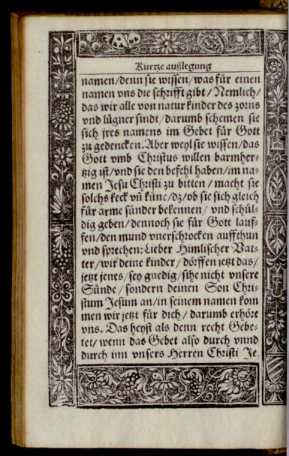 Kurtze außlegung
namen/denn sie wissen/was für einen
namen vns die schrifft gibt/Nemlich/
das wir alle von natur kinder des zorns
vnd lügner sindt/darumb schemen sie
sich jres namens im Gebet für Gott
zu gedencken. Aber weyl sie wissen/das
Gott vmb Christus willen barmher-
tzig ist/vnd sie den befehl haben/im na-
men Jesu Christi zu bitten/macht sie
solchs keck vn̄ küne/dz/ob sie sich gleich
für arme sünder bekennen/vnd schül-
dig geben/dennoch sie für Gott lauf-
fen/den mund vnerschrocken auffthun
vnd sprechen: Lieber Himlischer Vat-
ter/wir deine kinder/dörffen jetzt das/
jetzt jenes, sey gnedig/sihe nicht vnsere
Sünde/sondern deinen Son Chri-
stum Jesum an/in seinem namen kom
men wir jetzt für dich/darumb erhöre
vns. Das heyst als denn recht Gebe-
tet/wenn das Gebet also durch vnnd
durch inn vnsers Herren Christi Je